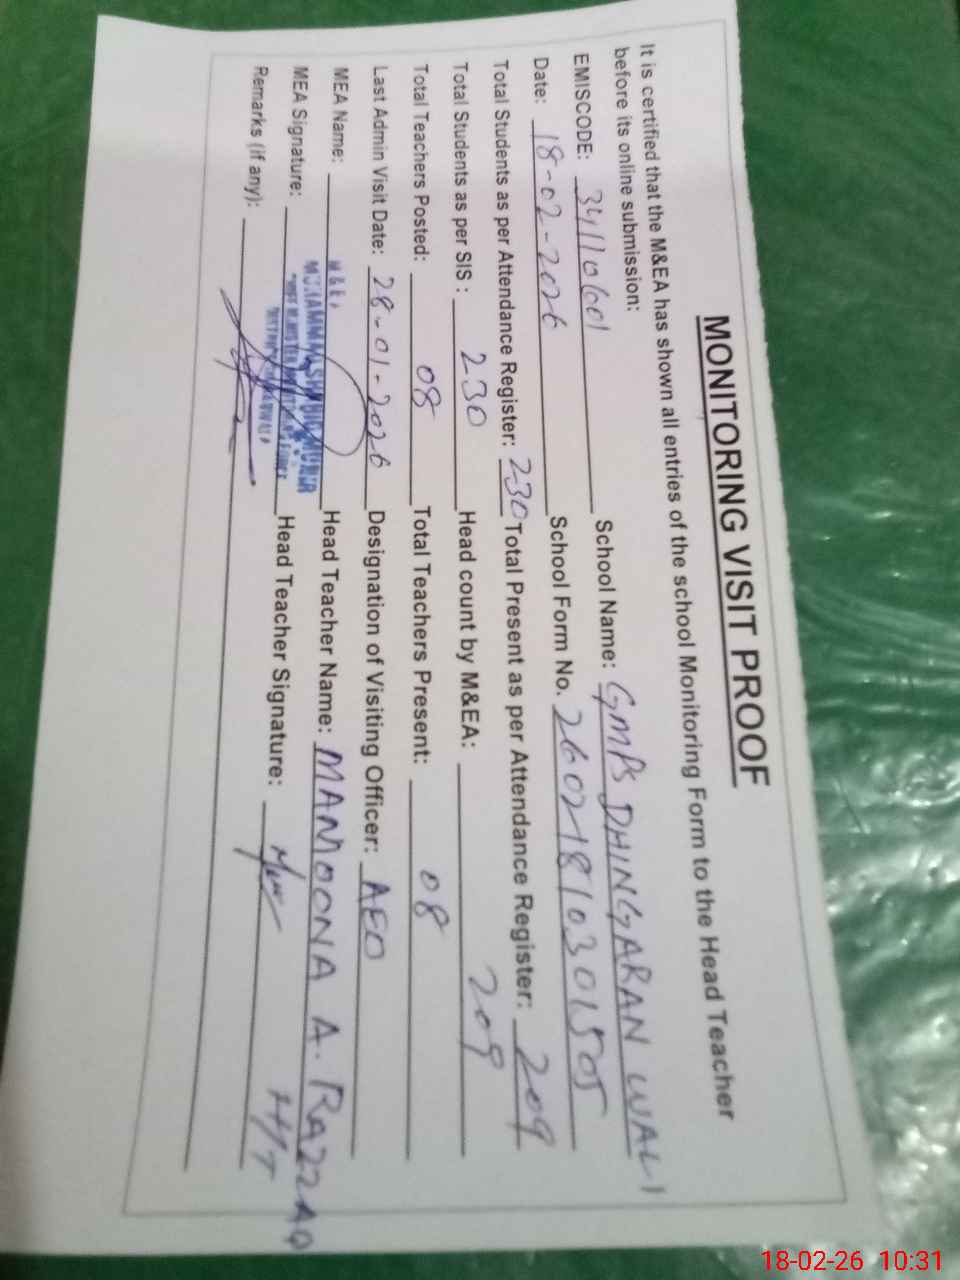 MONITORING VISIT PROOF
It is certified that the M&EA has shown all entries of the school Monitoring Form to the Head Teacher
before its online submission:
EMISCODE: 34110601 School Name: GMPS DHINGARAN WALI
Date: 18-02-2026 School Form No. 26021810301505
Total Students as per Attendance Register: 230 Total Present as per Attendance Register: 209
Total Students as per SIS : 230 Head count by M&EA: 209
Total Teachers Posted: 08 Total Teachers Present: 08
Last Admin Visit Date: 28-01-2026 Designation of Visiting Officer: AEO
MEA Name: Head Teacher Name: MAMOONA A. RAZZAQ
MEA Signature: Head Teacher Signature: H/T
Remarks (if any):
18-02-26 10:31